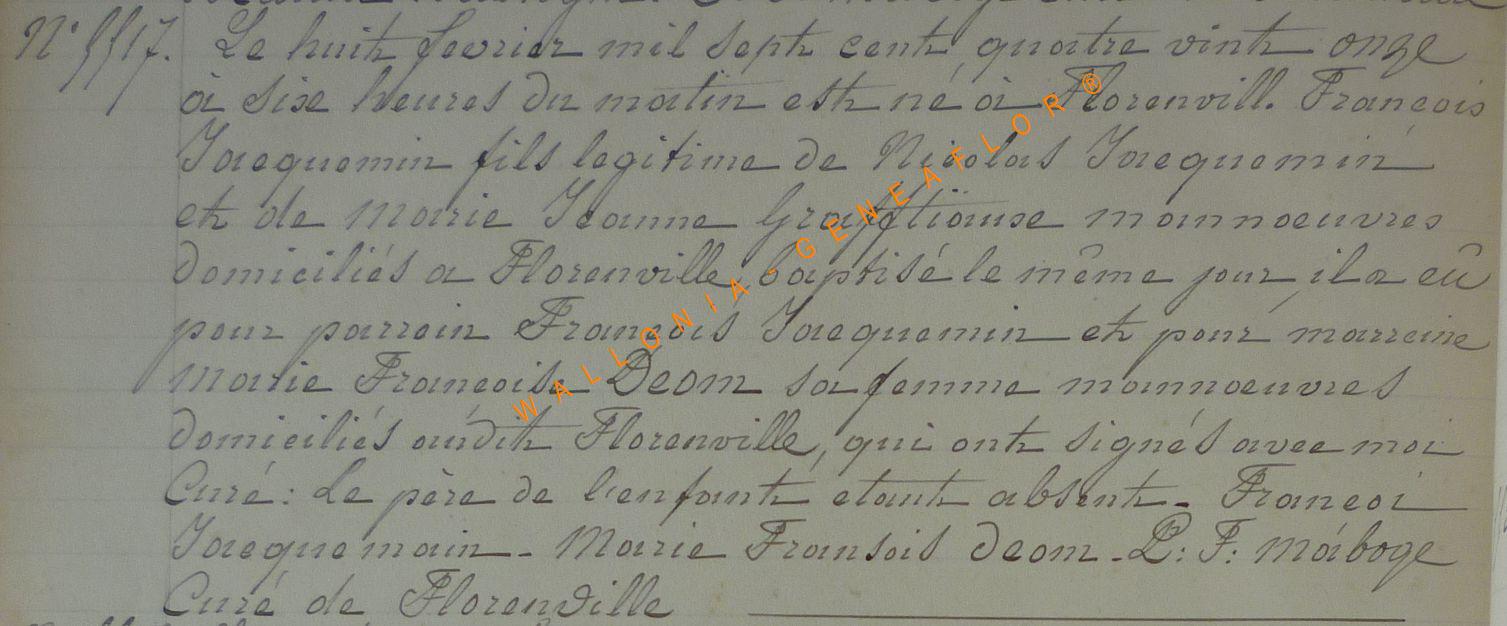 N° 5517. Le huit fevrier mil sept cent quatre vint onze
à sixe heures du matin est né à Florenvill. François
Jacquemin fils legitime de Nicolas Jacquemin
et de Marie Jeanne Grafftiause mannoeuvres
domiciliés a Florenville baptisé le même jour, il a eû
pour parrein François Jacquemin et pour marreine
Marie Francoise Deom sa femme mannoeuvres
domiciliés audit Florenville, qui ont signés avec moi
Curé: Le père de l'enfant etant absent - Francoi
Jacquemain - Marie Fransois deom - P: F: Maboge
Curé de Florenville
WALLONIA-GENEAFLOR®